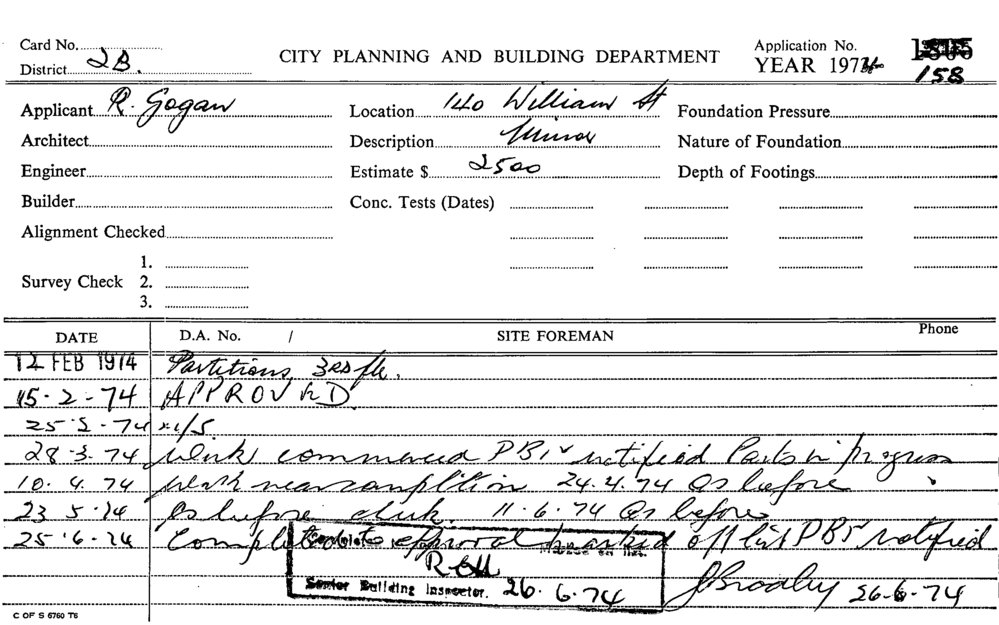 Card No.
CITY PLANNING AND BUILDING DEPARTMENT
Application No. 1305
District 2B.
YEAR 1974 158
Applicant R. Gogan
Location 140 William St
Foundation Pressure
Architect
Description Minor
Nature of Foundation
Engineer
Estimate $ 2500
Depth of Footings
Builder
Conc. Tests (Dates)
Alignment Checked
Survey Check 1.
2.
3.
DATE D.A. No. / SITE FOREMAN Phone
12 FEB 1974 Partitions 3RD flr.
15-2-74 APPROVED
25-2-74
28-3-74 Work commenced PBI notified Parts in progress
10.4.74 Work near completion 24.4.74 As before
23 5.74 As before 11.6.74 As before
25.6.74 Completed to approval marked off list PBI notified
Senior Building Inspector. 26.6.74
J Broadley 26-6-74
C OF S 6760 T6